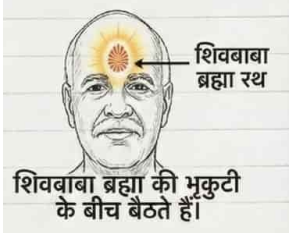 शिवबाबा
ब्रह्मा रथ
शिवबाबा ब्रह्मा की भृकुटी
के बीच बैठते हैं।